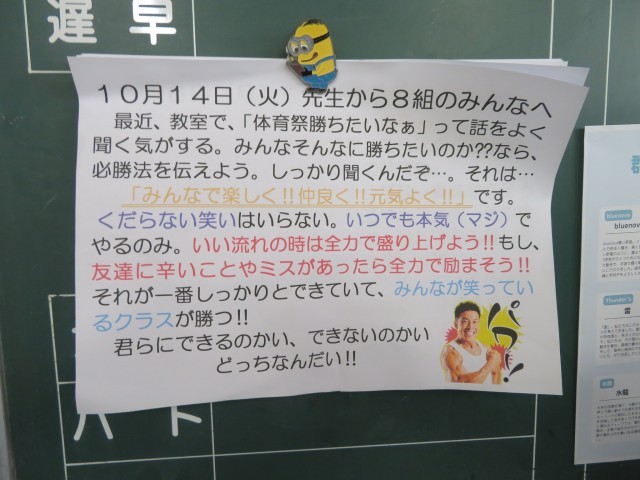 遅 早
10月14日（火）先生から8組のみんなへ
最近、教室で、「体育祭勝ちたいなぁ」って話をよく
聞く気がする。みんなそんなに勝ちたいのか??なら、
必勝法を伝えよう。しっかり聞くんだぞ…。それは…
「みんなで楽しく!!仲良く!!元気よく!!」です。
くだらない笑いはいらない。いつでも本気（マジ）で
やるのみ。いい流れの時は全力で盛り上げよう!!もし、
友達に辛いことやミスがあったら全力で励まそう!!
それが一番しっかりとできていて、みんなが笑ってい
るクラスが勝つ!!
君らにできるのかい、できないのかい
どっちなんだい!!
パワー!
bluenova
Thunder's
雷
水龍